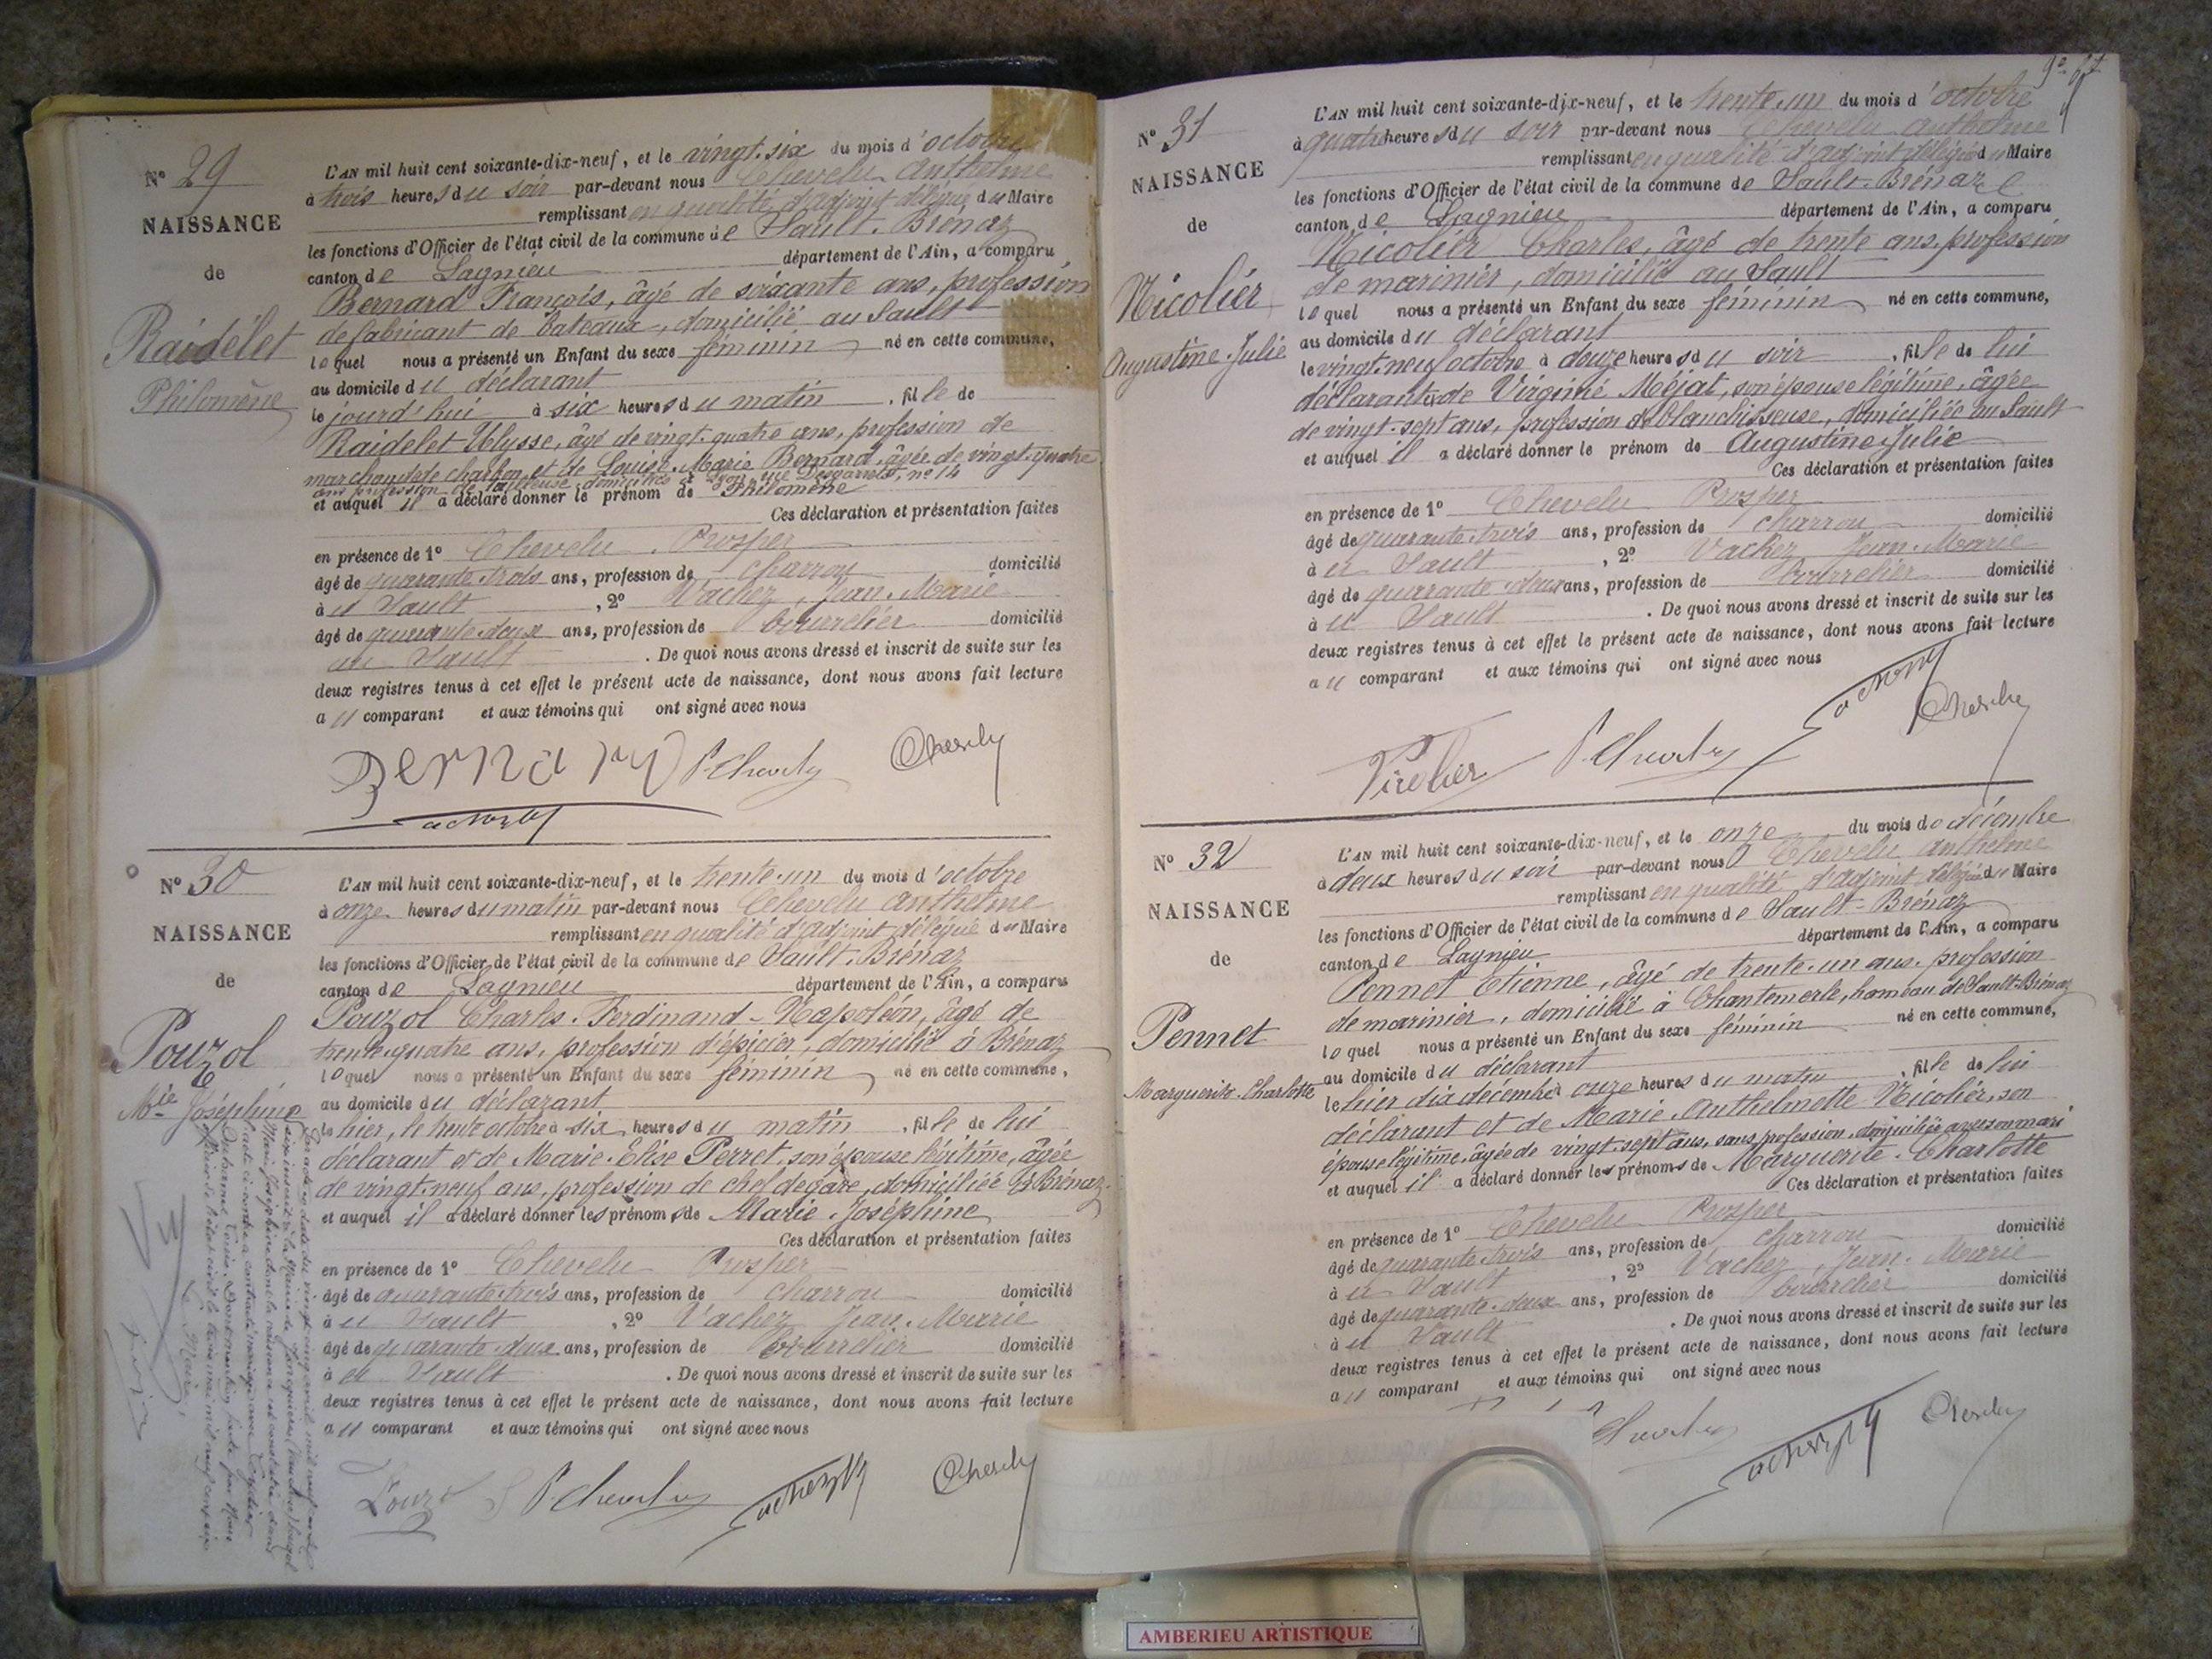 N° 29
NAISSANCE
de
Raidelet
Philomène
L'AN mil huit cent soixante-dix-neuf, et le vingt-six du mois d'octobre
à trois heures du soir par-devant nous Chevelu Anthelme
remplissant en qualité d'adjoint délégué du Maire
les fonctions d'Officier de l'état civil de la commune de Sault-Brénaz
canton de Lagnieu département de l'Ain, a comparu
Bernard François, âgé de soixante ans, profession
de fabricant de bateaux, domicilié au Sault
lequel nous a présenté un Enfant du sexe féminin né en cette commune,
au domicile du déclarant
le jourd'hui à six heures du matin, fille de
Raidelet Ulysse, âgé de vingt-quatre ans, profession de
marchand de charbon et de Louise-Marie Bernard, âgée de vingt-quatre
ans profession de tailleuse, domiciliés à Lyon, rue n° 14
et auquel il a déclaré donner le prénom de Philomène
Ces déclaration et présentation faites
en présence de 1° Chevelu Prosper
âgé de quarante-trois ans, profession de charron domicilié
à u Sault, 2° Vachez, Jean-Marie
âgé de quarante-deux ans, profession de bourrelier domicilié
au Sault. De quoi nous avons dressé et inscrit de suite sur les
deux registres tenus à cet effet le présent acte de naissance, dont nous avons fait lecture
au comparant et aux témoins qui ont signé avec nous
Bernard P. Chevelu Chevelu
N° 30
NAISSANCE
de
Pouzol
Mie Joséphine
L'AN mil huit cent soixante-dix-neuf, et le trente-un du mois d'octobre
à onze heures du matin par-devant nous Chevelu Anthelme
remplissant en qualité d'adjoint délégué du Maire
les fonctions d'Officier de l'état civil de la commune de Sault-Brénaz
canton de Lagnieu département de l'Ain, a comparu
Pouzol Charles-Ferdinand-Napoléon, âgé de
trente-quatre ans, profession d'épicier, domicilié à Brénaz
lequel nous a présenté un Enfant du sexe féminin né en cette commune,
au domicile du déclarant
le hier, le trente octobre à six heures du matin, fille de lui
déclarant et de Marie-Elise Perret, son épouse légitime, âgée
de vingt-neuf ans, profession de chef de gare, domiciliée à Brénaz
et auquel il a déclaré donner les prénoms de Marie-Joséphine
Ces déclaration et présentation faites
en présence de 1° Chevelu Prosper
âgé de quarante-trois ans, profession de charron domicilié
à u Sault, 2° Vachez Jean-Marie
âgé de quarante-deux ans, profession de bourrelier domicilié
à u Sault. De quoi nous avons dressé et inscrit de suite sur les
deux registres tenus à cet effet le présent acte de naissance, dont nous avons fait lecture
au comparant et aux témoins qui ont signé avec nous
Pouzol P. Chevelu Chevelu
N° 31
NAISSANCE
de
Nicolier
Augustine-Julie
L'AN mil huit cent soixante-dix-neuf, et le trente-un du mois d'octobre
à quatre heures du soir par-devant nous Chevelu Anthelme
remplissant en qualité d'adjoint délégué du Maire
les fonctions d'Officier de l'état civil de la commune de Sault-Brénaz
canton de Lagnieu département de l'Ain, a comparu
Nicolier Charles, âgé de trente ans, profession
de marinier, domicilié au Sault
lequel nous a présenté un Enfant du sexe féminin né en cette commune,
au domicile du déclarant
le vingt-neuf octobre à douze heures du soir, fille de lui
déclarant et de Virginie Méjat, son épouse légitime, âgée
de vingt-sept ans, profession de blanchisseuse, domiciliée au Sault
et auquel il a déclaré donner le prénom de Augustine-Julie
Ces déclaration et présentation faites
en présence de 1° Chevelu Prosper
âgé de quarante-trois ans, profession de charron domicilié
à u Sault, 2° Vachez Jean-Marie
âgé de quarante-deux ans, profession de bourrelier domicilié
à u Sault. De quoi nous avons dressé et inscrit de suite sur les
deux registres tenus à cet effet le présent acte de naissance, dont nous avons fait lecture
au comparant et aux témoins qui ont signé avec nous
P. Chevelu Chevelu
N° 32
NAISSANCE
de
Pennet
Marguerite-Charlotte
L'AN mil huit cent soixante-dix-neuf, et le onze du mois de décembre
à deux heures du soir par-devant nous Chevelu Anthelme
remplissant en qualité d'adjoint délégué du Maire
les fonctions d'Officier de l'état civil de la commune de Sault-Brénaz
canton de Lagnieu département de l'Ain, a comparu
Pennet Etienne, âgé de trente-un ans, profession
de marinier, domicilié à Chantemerle, hameau de Sault-Brénaz
lequel nous a présenté un Enfant du sexe féminin né en cette commune,
au domicile du déclarant
le hier dix décembre à onze heures du matin, fille de lui
déclarant et de Marie-Anthelmette Nicolier, son
épouse légitime, âgée de vingt-sept ans, sans profession, domiciliée avec son mari
et auquel il a déclaré donner les prénoms de Marguerite-Charlotte
Ces déclaration et présentation faites
en présence de 1° Chevelu Prosper
âgé de quarante-trois ans, profession de charron domicilié
à u Sault, 2° Vachez, Jean-Marie
âgé de quarante-deux ans, profession de bourrelier domicilié
à u Sault. De quoi nous avons dressé et inscrit de suite sur les
deux registres tenus à cet effet le présent acte de naissance, dont nous avons fait lecture
au comparant et aux témoins qui ont signé avec nous
Chevelu Chevelu
AMBERIEU ARTISTIQUE